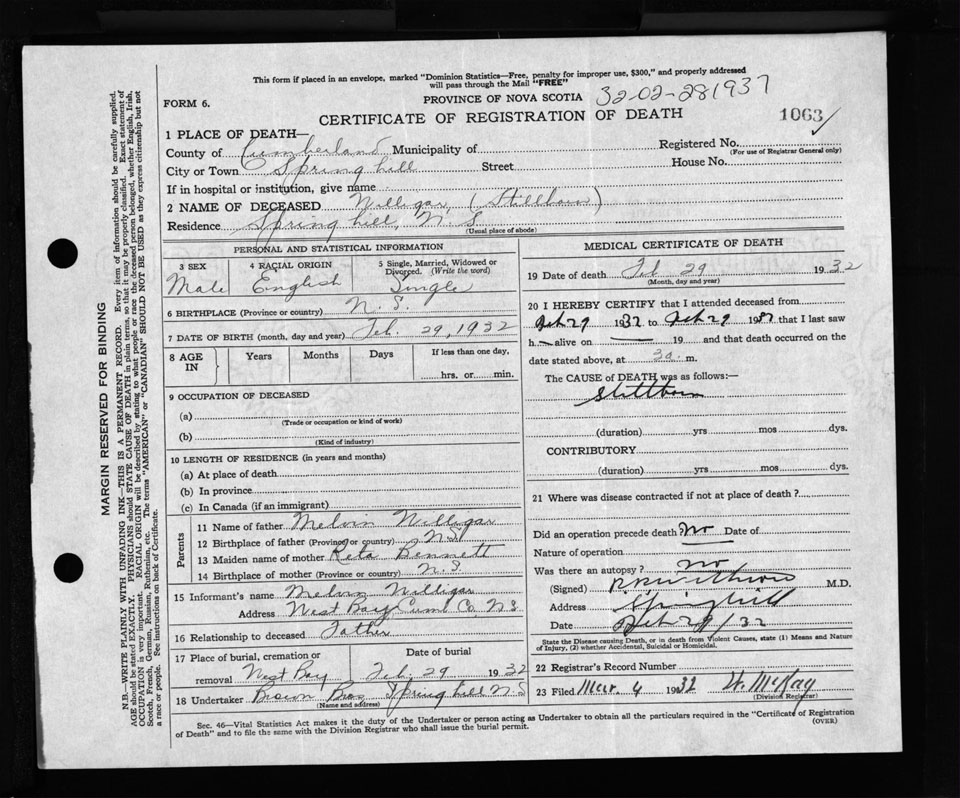 This form if placed in an envelope, marked "Dominion Statistics—Free, penalty for improper use, $300," and properly addressed
will pass through the Mail "FREE"
FORM 6.
PROVINCE OF NOVA SCOTIA 32-02-281937
CERTIFICATE OF REGISTRATION OF DEATH 1063
1 PLACE OF DEATH—
County of Cumberland Municipality of Registered No.
(For use of Registrar General only)
City or Town Spring hill Street House No.
If in hospital or institution, give name
2 NAME OF DECEASED Willigar, (Stillborn)
Residence Spring hill, N. S.
(Usual place of abode)
PERSONAL AND STATISTICAL INFORMATION
3 SEX Male
4 RACIAL ORIGIN English
5 Single, Married, Widowed or Divorced. (Write the word) Single
6 BIRTHPLACE (Province or country) N. S.
7 DATE OF BIRTH (month, day and year) Feb. 29, 1932
8 AGE IN Years Months Days If less than one day, hrs. or min.
9 OCCUPATION OF DECEASED
(a)
(Trade or occupation or kind of work)
(b)
(Kind of industry)
10 LENGTH OF RESIDENCE (in years and months)
(a) At place of death
(b) In province
(c) In Canada (if an immigrant)
Parents
11 Name of father Melvin Willigar
12 Birthplace of father (Province or country) N.S.
13 Maiden name of mother Reta Bennett
14 Birthplace of mother (Province or country) N. S.
15 Informant's name Melvin Willigar
Address West Bay Cumb Co. N S
16 Relationship to deceased Father
17 Place of burial, cremation or removal West Bay Date of burial Feb. 29 1932
18 Undertaker Brown Bros Spring hill N S
(Name and address)
MEDICAL CERTIFICATE OF DEATH
19 Date of death Feb 29 1932
(Month, day and year)
20 I HEREBY CERTIFY that I attended deceased from
Feb 29 1932 to Feb 29 1932 that I last saw
h— alive on — 19 and that death occurred on the
date stated above, at 3 a. m.
The CAUSE of DEATH was as follows:—
Stillborn
(duration) yrs mos dys.
CONTRIBUTORY
(duration) yrs mos dys.
21 Where was disease contracted if not at place of death?
Did an operation precede death? No Date of
Nature of operation
Was there an autopsy? No
(Signed) M.D.
Address Springhill
Date Feb 29/32
State the Disease causing Death, or in death from Violent Causes, state (1) Means and Nature
of Injury, (2) whether Accidental, Suicidal or Homicidal.
22 Registrar's Record Number
23 Filed Mar. 4 1932 W. McKay
(Division Registrar)
Sec. 46—Vital Statistics Act makes it the duty of the Undertaker or person acting as Undertaker to obtain all the particulars required in the "Certificate of Registration
of Death" and to file the same with the Division Registrar who shall issue the burial permit.
(OVER)
MARGIN RESERVED FOR BINDING
N.B.—WRITE PLAINLY WITH UNFADING INK—THIS IS A PERMANENT RECORD. Every item of information should be carefully supplied.
AGE should be stated EXACTLY. PHYSICIANS should STATE CAUSE OF DEATH in plain terms, so that it may be properly classified. Exact statement of
OCCUPATION is very important. RACIAL ORIGIN will be described by stating to what people or race the deceased person belonged, whether English, Irish,
Scotch, French, German, Russian, Ruthenian, etc. The terms "AMERICAN" or "CANADIAN" SHOULD NOT BE USED as they express citizenship but not
a race or people. See instructions on back of Certificate.